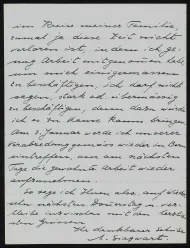 im Kreise meiner Familie,
zumal ja diese Zeit nicht
verloren ist, in dem ich ge-
nug Arbeit mitgenommen habe
um mich einigermassen
zu beschäftigen, ich darf nicht
sagen, stark od. übermässig
zu beschäftigen, denn dazu würde
ich es zu Hause kaum bringen.
Am 3. Januar werde ich unserer
Verabredung gemäss wieder in Bonn
eintreffen, um am nächsten
Tage die gewohnte Arbeit wieder
aufzunehmen.
So sage ich Ihnen also auf Wieder-
sehn nächsten Donnerstag u. ver-
bleibe inzwischen mit den herzlich-
sten Grüssen
Ihr dankbarer
A. Siegwart.